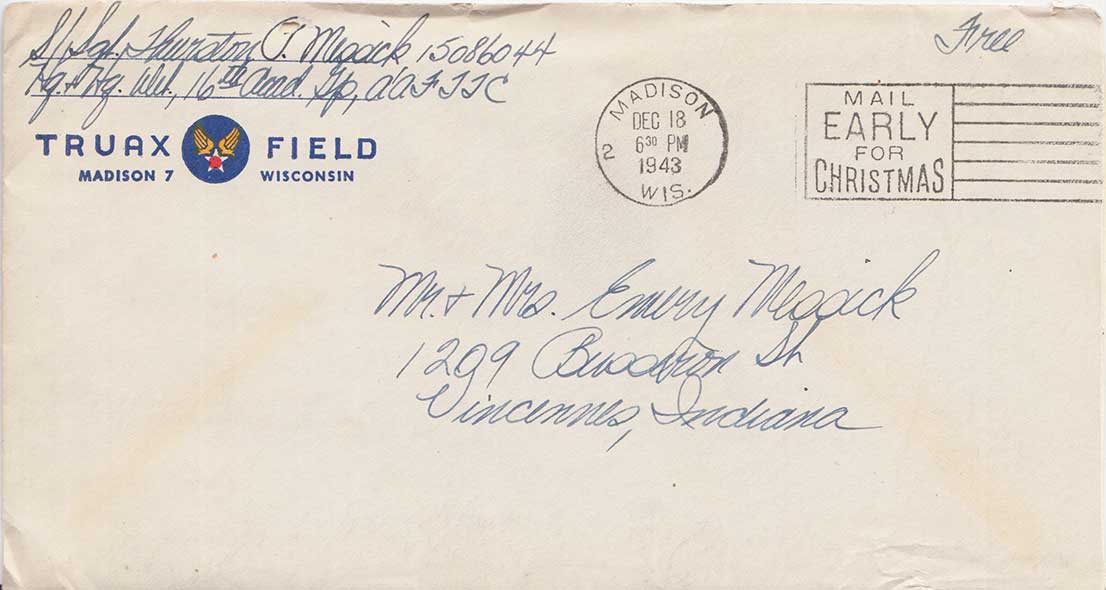 S/Sgt. Thurston O. Messick 15086044
Hq. & Hq. Det., 16th Acad. Gp, AAFTTC
Free
TRUAX FIELD
MADISON 7 WISCONSIN
MADISON
DEC 18
6 30 PM
1943
2
WIS.
MAIL
EARLY
FOR
CHRISTMAS
Mr. & Mrs. Emery Messick
1209 Busseron St
Vincennes, Indiana